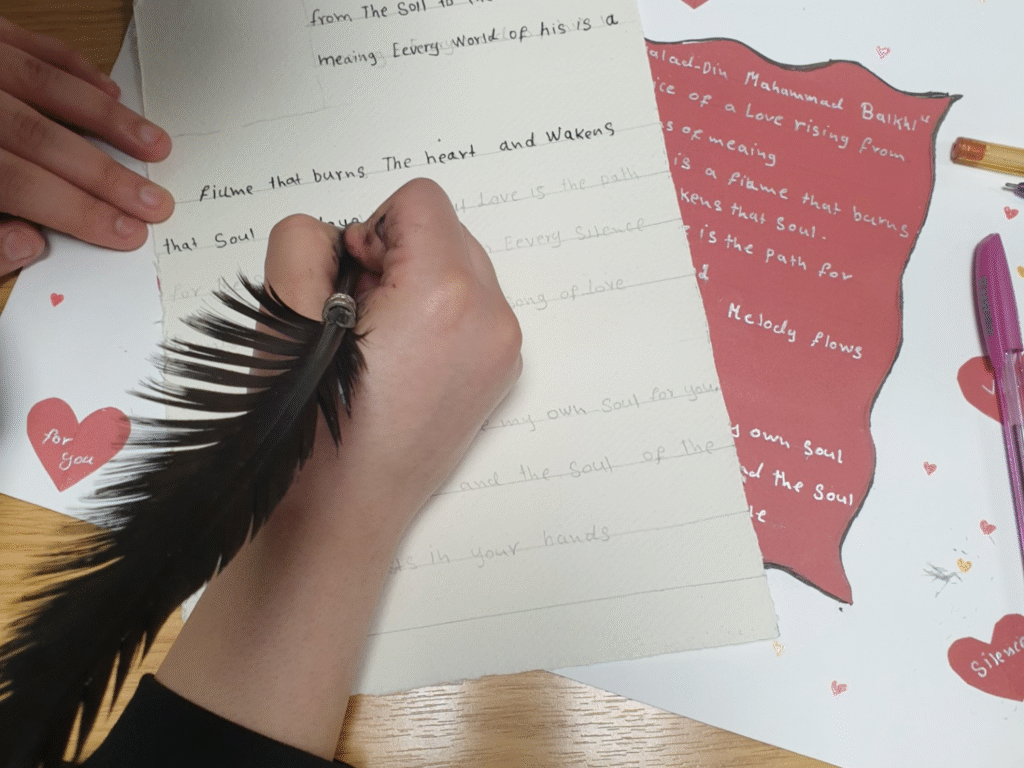 from The Soil to
meaing Eevery World of his is a
fiUme that burns The heart and Wakens
that Soul
Love is the path
for
Eevery Silence
song of love
my own Soul for you
and the Soul of the
in your hands
alad-Din Mahammad Balkhi"
ice of a Love rising from
s of meaing
is a fiUme that burns
kens that Soul.
is the path for
d
Melody flows
own Soul
d the Soul
le
for
you
Silence